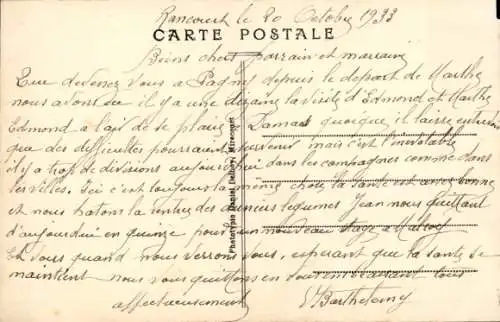 Rancourt le 20 Octobre 1933
CARTE POSTALE
Biens chers parrain et marraine
Que devenez vous a Pagney depuis le depart de Marthe
nous avons eu il y a une dizaine la visite d'Edmond et Marthe
Edmond a l'air de se plaire a Damas quoique il laisse entendre
que des difficultes pourraient survenir mais c'est l'inevitable
il y a trop de divisions aujourd'hui dans les campagnes comme dans
les villes. Ici c'est toujours la même chose la sante est assez bonne
et nous hatons la rentree des derniers legumes Jean nous quittant
d'aujourd'hui en quinze pour un nouveau stage a
Et vous quand nous verrons vous, esperant que la sante se
maintient nous vous quittons en vous embrassant tous
affectueusement V Barthelemy
Phototypie Daniel Delboy, Mirecourt